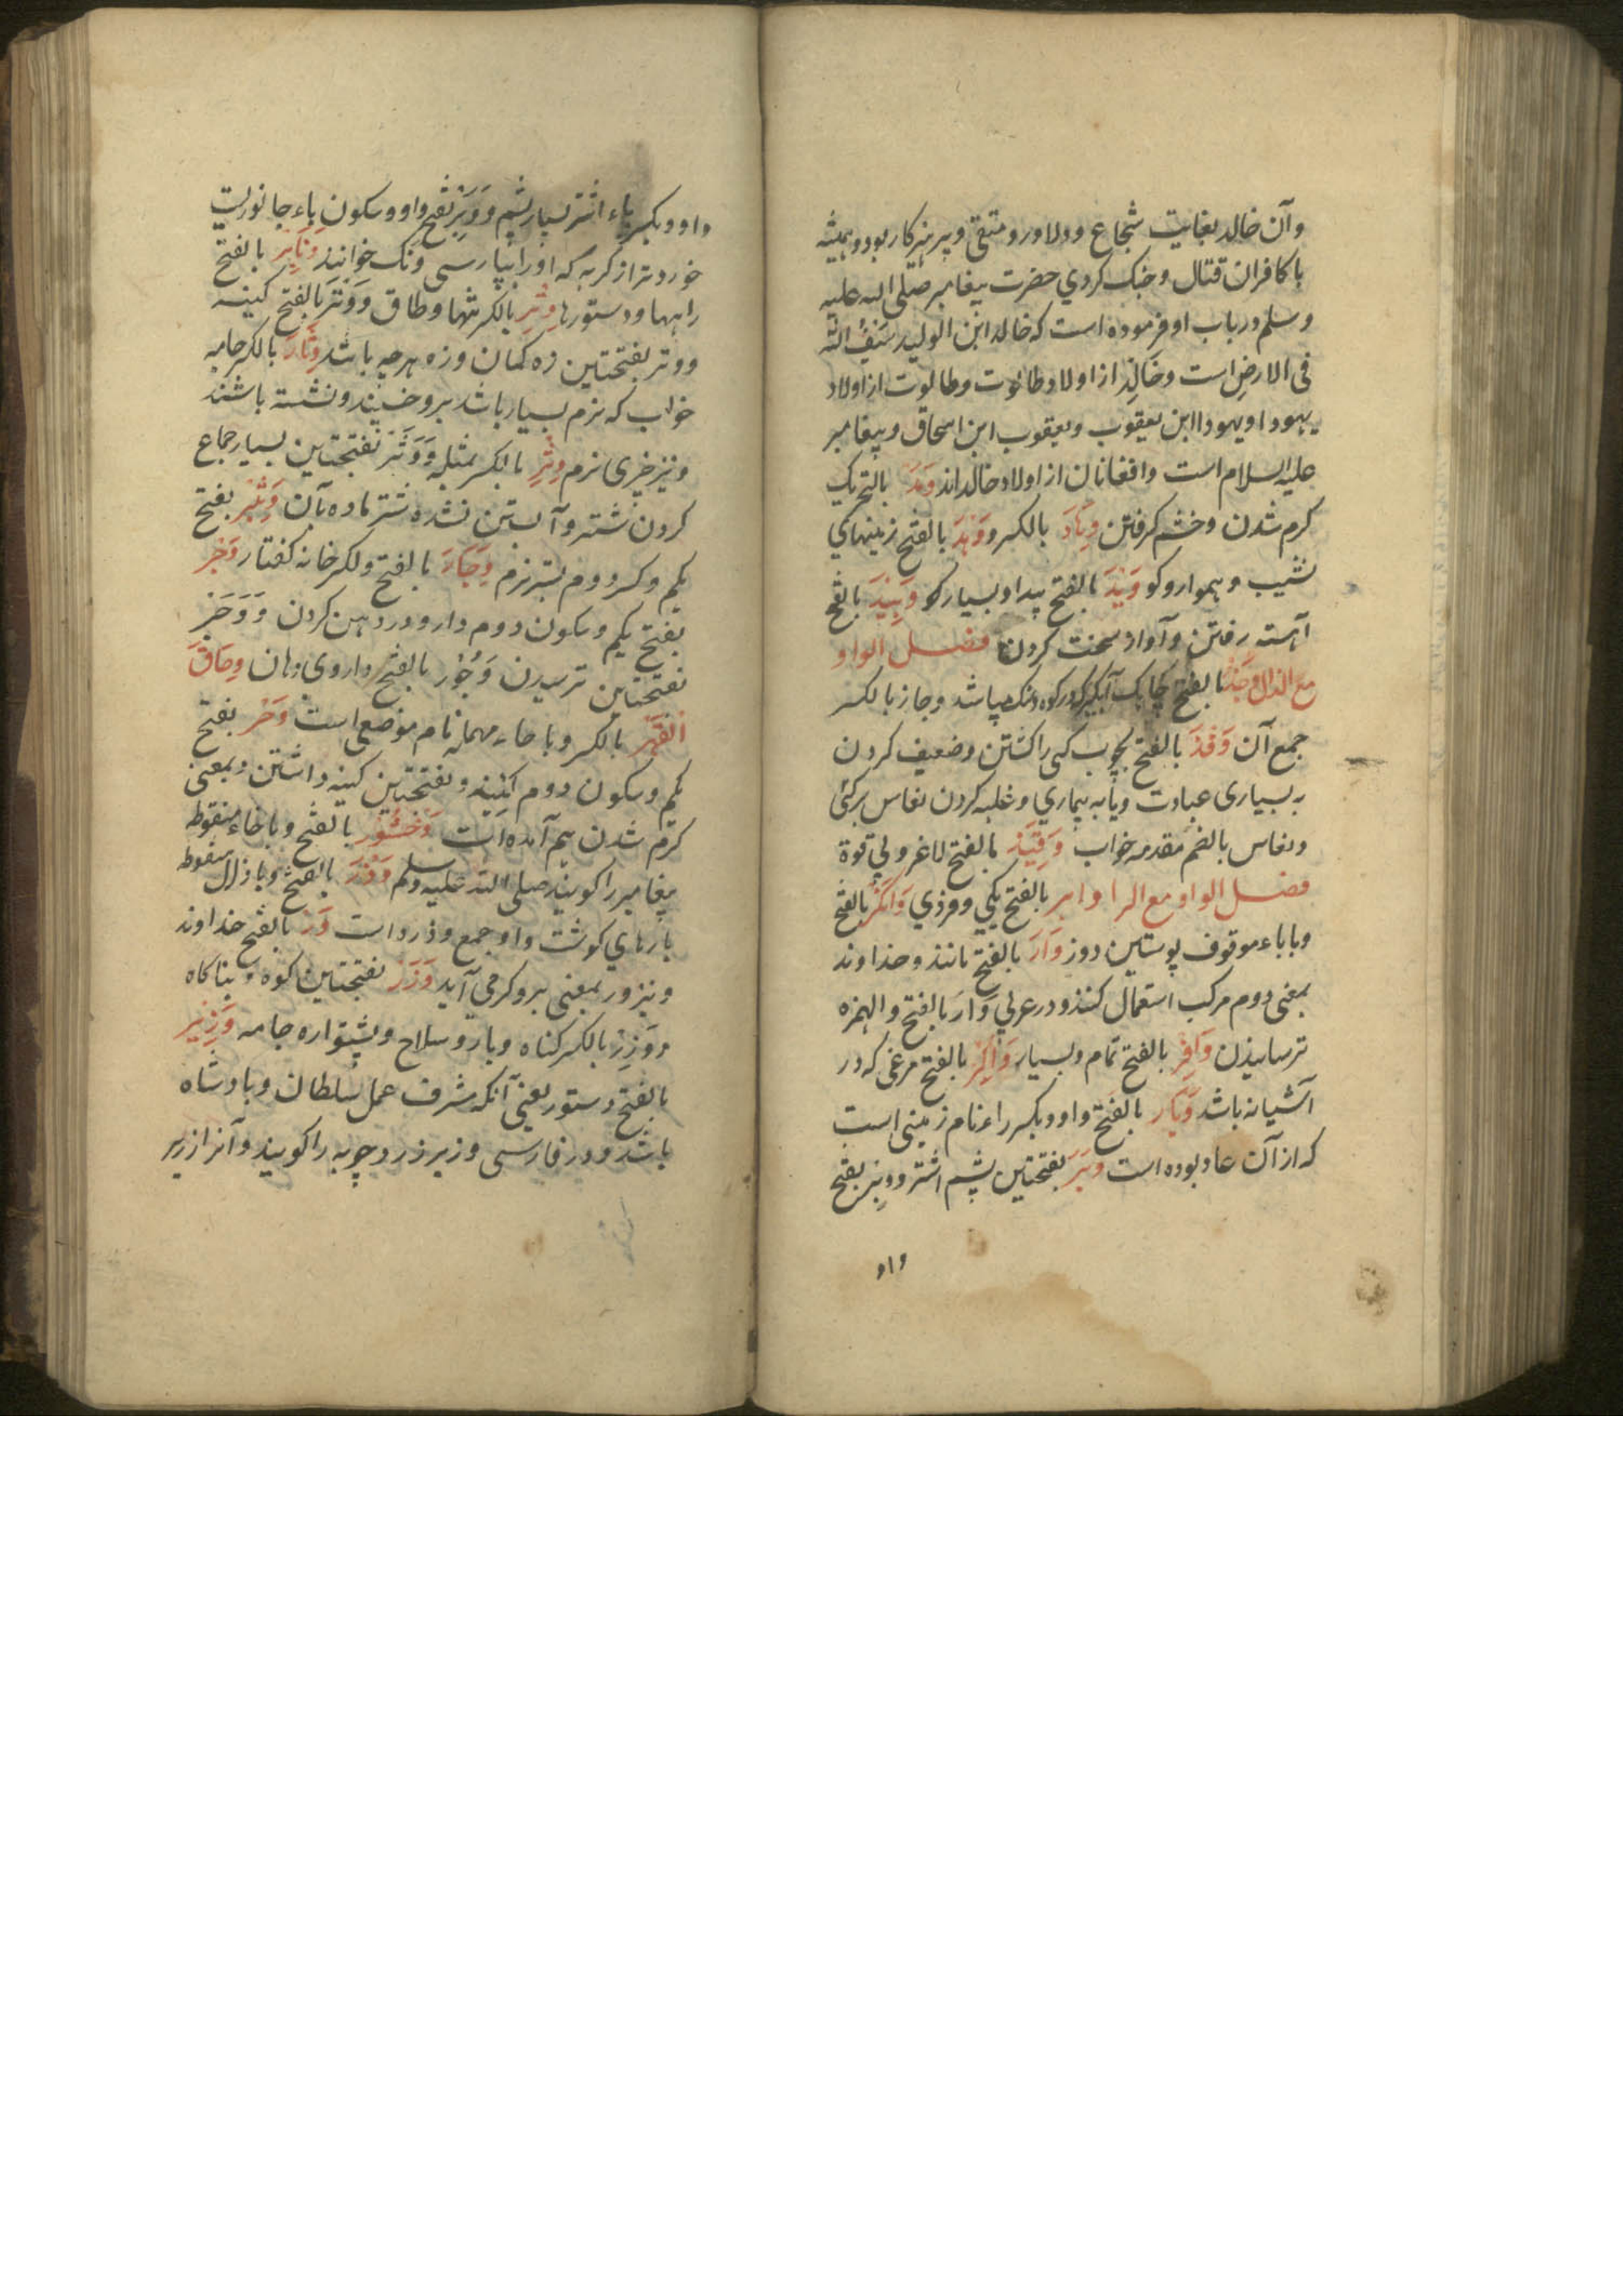 وآن خالد بغایت شجاع ودلاور ومتقی وپرهیزکار بود وهمیشه
با کافران قتال وجنک کردی حضرت پیغامبر صلی الله علیه
وسلم در باب او فرموده است که خالد ابن الولید سَیْفُ الله
فی الارضِ است وخالد از اولاد طالوت وطالوت از اولاد
یهودا ویهودا ابن یعقوب ویعقوب ابن اسحاق وپیغامبر
علیه السلام است وافغانان از اولاد خالد اند وَمَدَ بالتحریک
کرم شدن وخشم کرفتن وِهَادَ بالکسر ووَهَدَ بالفتح زمینهای
نشیب وهموار وکو وَیْدَ بالفتح پیدا وبسیار کو وَئِیْدَ بالفتح
آهسته رفتن وآواز سخت کردن فصل الواو
مع الذال وَجَذْ بالفتح آبکیر که در کوه وسنک باشد وجاز بالکسر
جمع آن وَقَذَ بالفتح بچوب کسی را کشتن وضعیف کردن
بسیاری عبادت ویا به بیماری وغلبه کردن نعاس برکسی
ونعاس بالضم مقدمه خواب وَقِیْذ بالفتح لاغر وبی قوة
فصل الواو مع الرا وابر بالفتح یکی وفردی وَاتکَرْ بالفتح
وباباء موقوف پوستین دوز وَارَ بالفتح مانند وخداوند
بمعنی دوم مرکب استعمال کنند ودر عربی وَارَ بالفتح والهمزه
ترسانیدن وَافِرْ بالفتح تمام وبسیار وَاکِرْ بالفتح مرغی که در
آشیانه باشد وَبَار بالفتح واو وبکسر راء نام زمینی است
که از آن عاد بوده است وَبَرَ بفتحتین پشم اشتر ووبر بفتح
واو
واو وبکسر باء اشتر بسیار پشم ووَبْر بفتح واو وسکون باء جانوریست
خورد تر از کربه که اورا بپارسی ونک خوانند وَتَایِرْ بالفتح
راهها ودستورها وِتْرِ بالکسر تنها وطاق ووَتْرَ بالفتح کینه
ووتر بفتحتین زه کمان وزه هرچه باشد وِثَارَ بالکسر جامه
خواب که نرم بسیار باشد برو خسپند ونشسته باشند
ونیز چیزی نرم وِثْرِ بالکسر مثله ووَثَرْ بفتحتین بسیار جماع
کردن شتر وآبستن نشده شتر ماده بآن وَثِرْ بفتح
یکم وکسر دوم بستر نرم وِجَارَ بالفتح والکسر خانه کفتار وَجْر
بفتح یکم وسکون دوم دارو در دهن کردن ووَجَرْ
بفتحتین ترسیدن وَجُوْر بالفتح داروی دهان وحَاقَّ
القَهْرِ بالکسر وبا حاء مهمله نام موضعی است وَحْر بفتح
یکم وسکون دوم کینه وبفتحتین کینه داشتن وبمعنی
کرم شدن هم آمده است وَخْشُوْر بالفتح وبا خاء منقوطه
پیغامبر را کویند صلی الله علیه وسلم وَذَرَ بالفتح وبا ذال منقوطه
پارهای کوشت واو جمع وذره است وَرْ بالفتح خداوند
ونیز ور بمعنی برو کرمی آید وَزَرْ بفتحتین کوه وپناکاه
ووِزِرْ بالکسر کناه وبار وسلاح وپشتواره جامه وَزِیْر
بالفتح دستور یعنی آنکه مشرف عمل سلطان وبادشاه
باشد ودر فارسی وزیر زرد چوبه را کویند وآنرا زریر